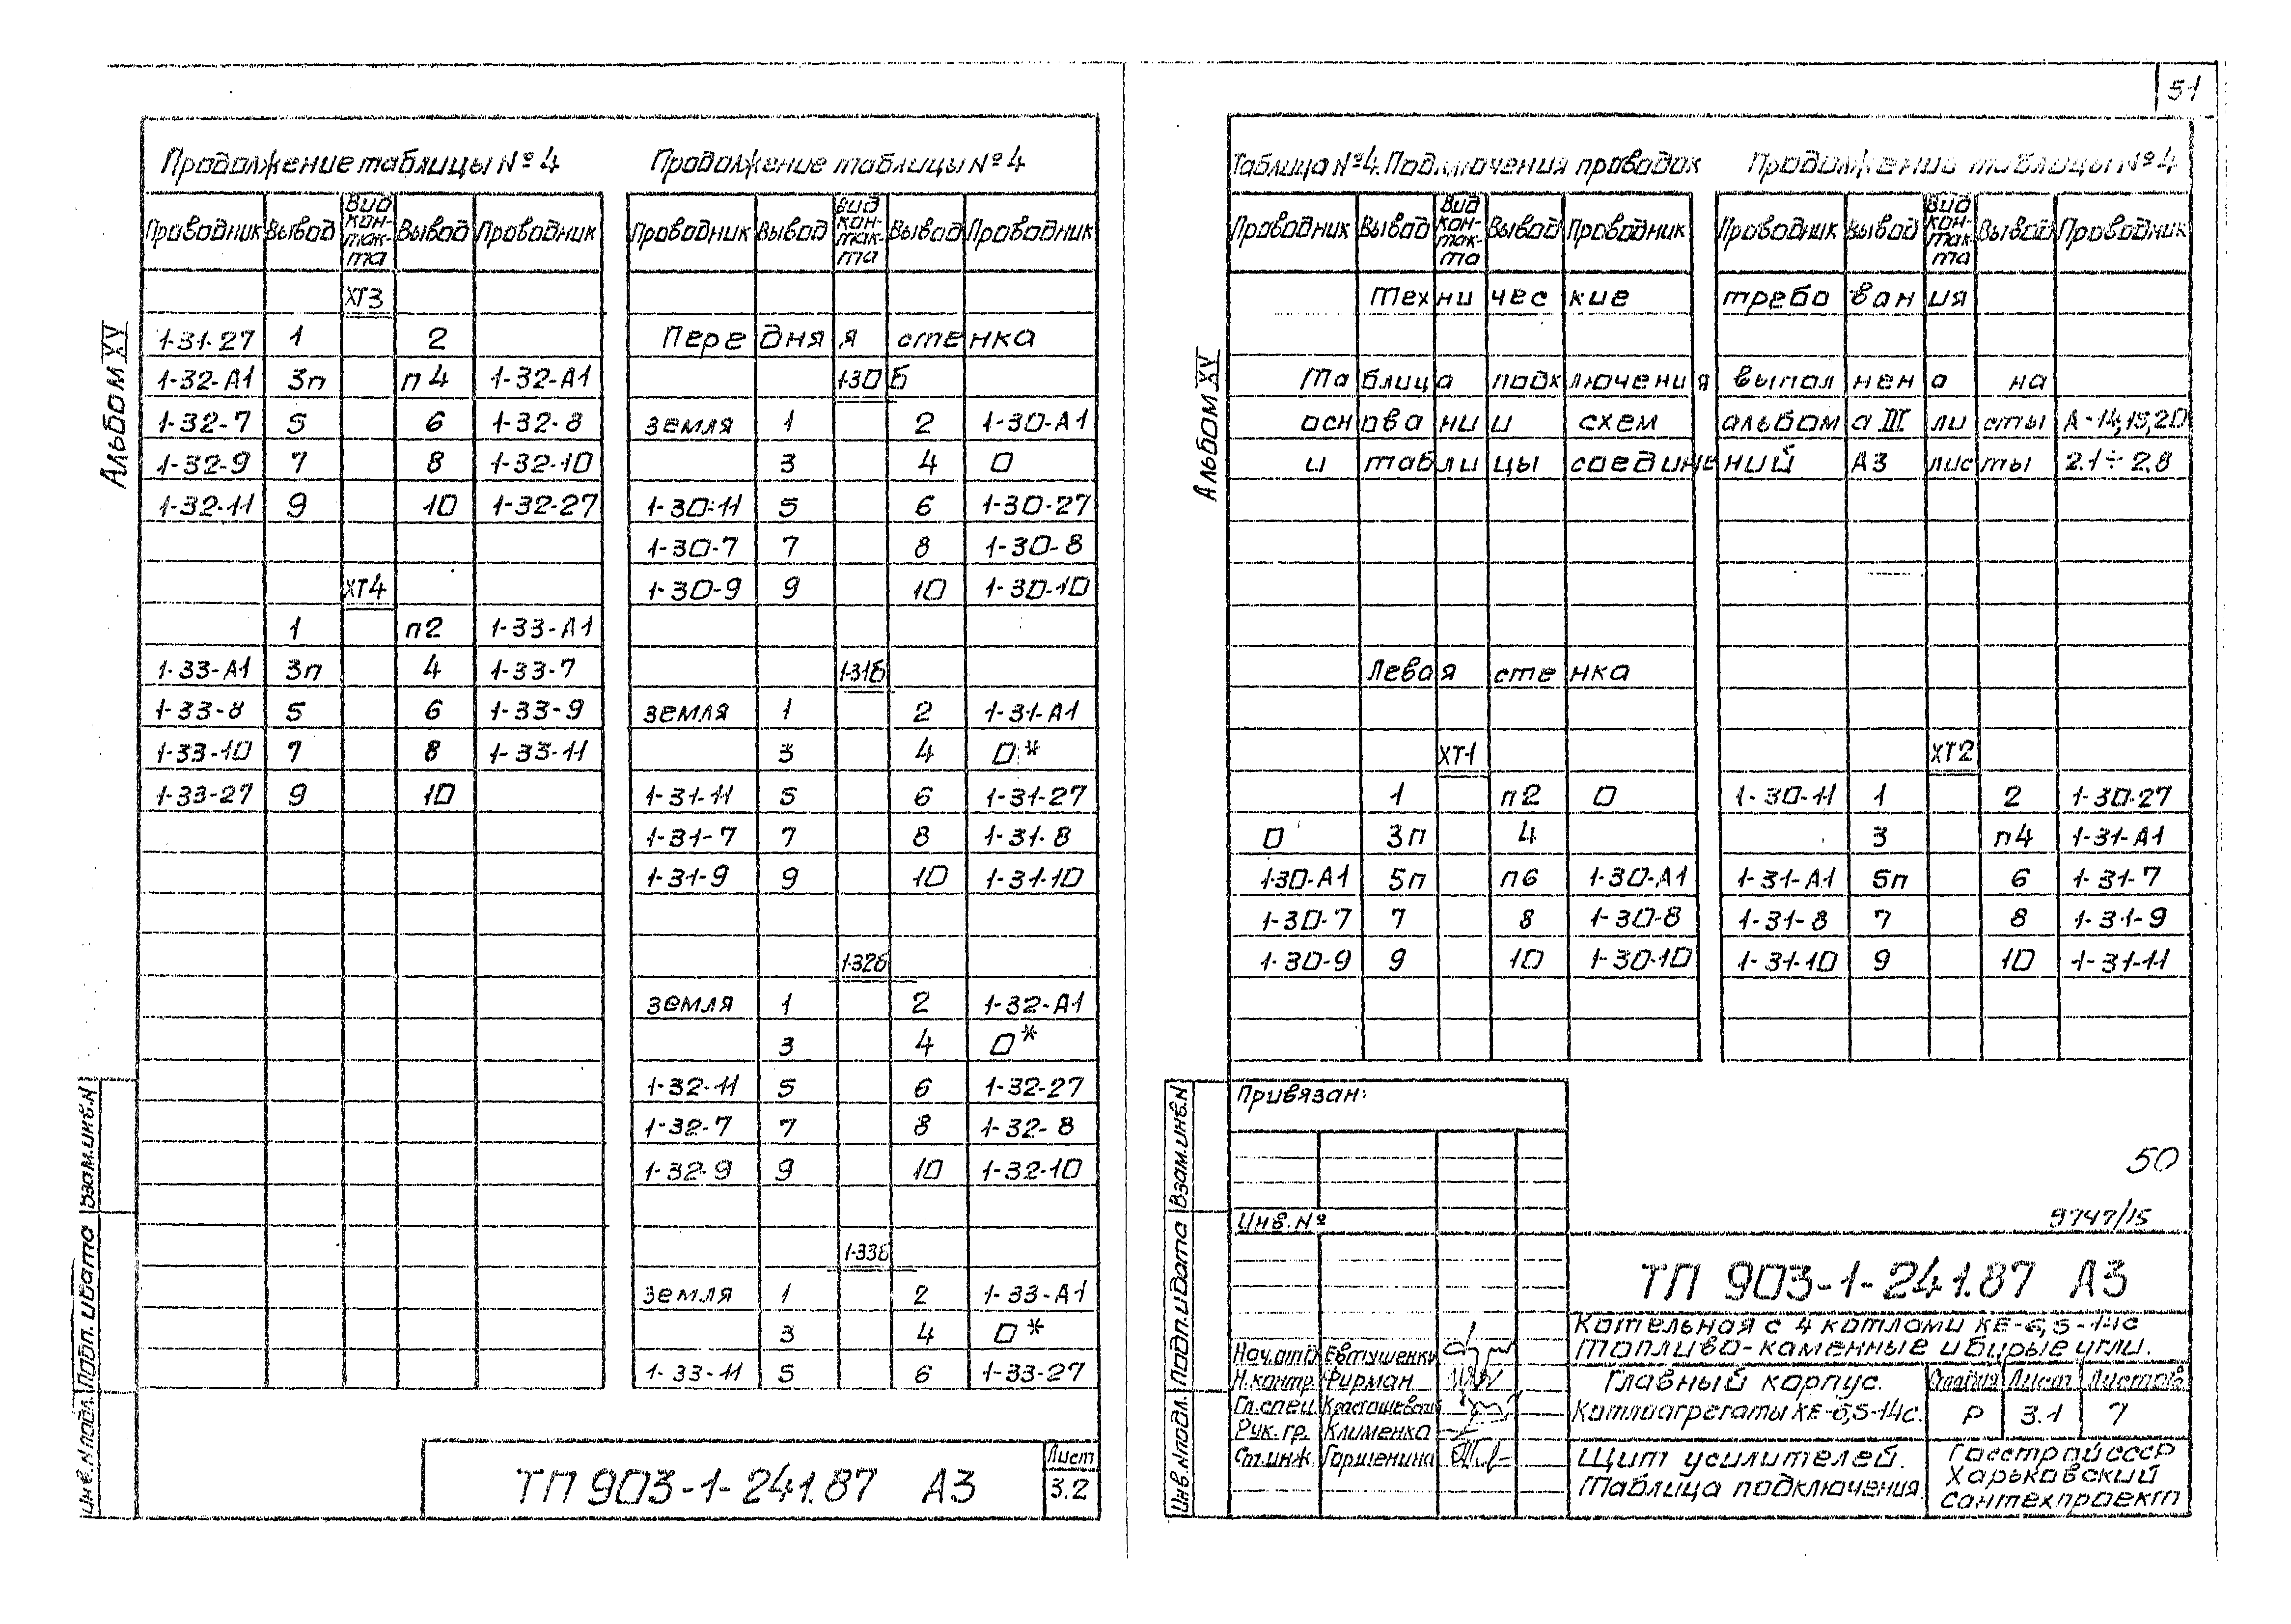 51
Альбом XV
Продолжение таблицы № 4
Проводник Вывод Вид кон-так-та Вывод Проводник
ХТ3
1-31-27 1 2
1-32-А1 3п п4 1-32-А1
1-32-7 5 6 1-32-8
1-32-9 7 8 1-32-10
1-32-11 9 10 1-32-27
ХТ4
1 п2 1-33-А1
1-33-А1 3п 4 1-33-7
1-33-8 5 6 1-33-9
1-33-10 7 8 1-33-11
1-33-27 9 10
Продолжение таблицы № 4
Проводник Вывод Вид кон-так-та Вывод Проводник
Передняя стенка
1-30б
земля 1 2 1-30-А1
3 4 0
1-30-11 5 6 1-30-27
1-30-7 7 8 1-30-8
1-30-9 9 10 1-30-10
1-31б
земля 1 2 1-31-А1
3 4 0*
1-31-11 5 6 1-31-27
1-31-7 7 8 1-31-8
1-31-9 9 10 1-31-10
1-32б
земля 1 2 1-32-А1
3 4 0*
1-32-11 5 6 1-32-27
1-32-7 7 8 1-32-8
1-32-9 9 10 1-32-10
1-33б
земля 1 2 1-33-А1
3 4 0*
1-33-11 5 6 1-33-27
Инв.№подл. Подп. и дата Взам.инв.N
ТП 903-1-241.87 А3
Лист
3.2
Альбом XV
Таблица №4. Подключения проводок
Продолжение таблицы № 4
Проводник Вывод Вид кон-так-та Вывод Проводник Проводник Вывод Вид кон-так-та Вывод Проводник
Технические требования
Таблица подключения выполнена на
основании схем альбома III листы А-14,15,20
и таблицы соединений А3 листы 2.1÷2.8
Левая стенка
ХТ1 ХТ2
1 п2 0 1-30-11 1 2 1-30-27
0 3п 4 3 п4 1-31-А1
1-30-А1 5п п6 1-30-А1 1-31-А1 5п 6 1-31-7
1-30-7 7 8 1-30-8 1-31-8 7 8 1-31-9
1-30-9 9 10 1-30-10 1-31-10 9 10 1-31-11
Инв.№подл. Подп. и дата Взам.инв.N
Привязан:
Инв.№
50
9747/15
ТП 903-1-241.87 А3
Котельная с 4 котлами КЕ-6,5-14с
Топливо-каменные и бурые угли.
Нач.отд Евтушенко
Н.контр. Фирман
Гл.спец
Рук. гр. Клименко
Ст.инж. Горшенина
Главный корпус.
Котлоагрегаты КЕ-6,5-14с.
Стадия Лист Листов
Р 3.1 7
Щит усилителей.
Таблица подключения
Госстрой СССР
Харьковский
Сантехпроект